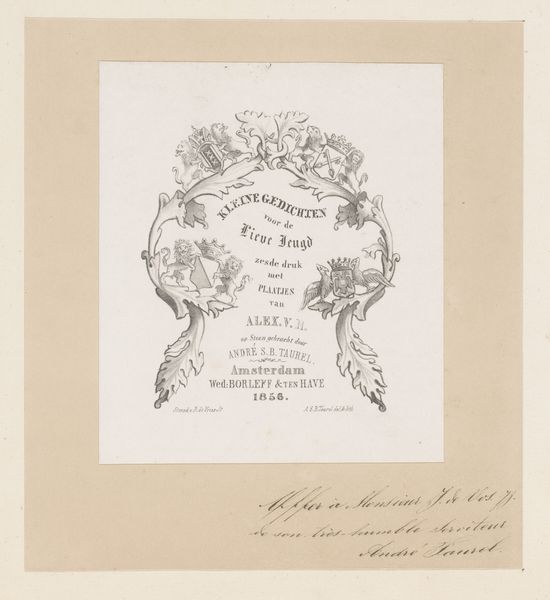 KLEINE GEDICHTEN
voor de
Lieve Jeugd
zesde druk
met
PLAATJES
van
ALEX. V. M.
op Steen gebracht door
ANDRÉ S. B. TAUREL.
Amsterdam
Wed: BORLEFF & TEN HAVE
1856.
A. S. B. Taurel del. & lith.
Offer à Monsieur J. de Vos Jz.
de son très humble Serviteur
André Taurel.